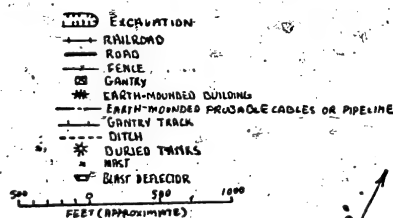 EXCAVATION
RAILROAD
ROAD
FENCE
GANTRY
EARTH-MOUNDED BUILDING
EARTH-MOUNDED PROBABLE CABLES OR PIPELINE
GANTRY TRACK
DITCH
BURIED TANKS
MAST
BLAST DEFLECTOR
500 0 500 1000
FEET (APPROXIMATE)